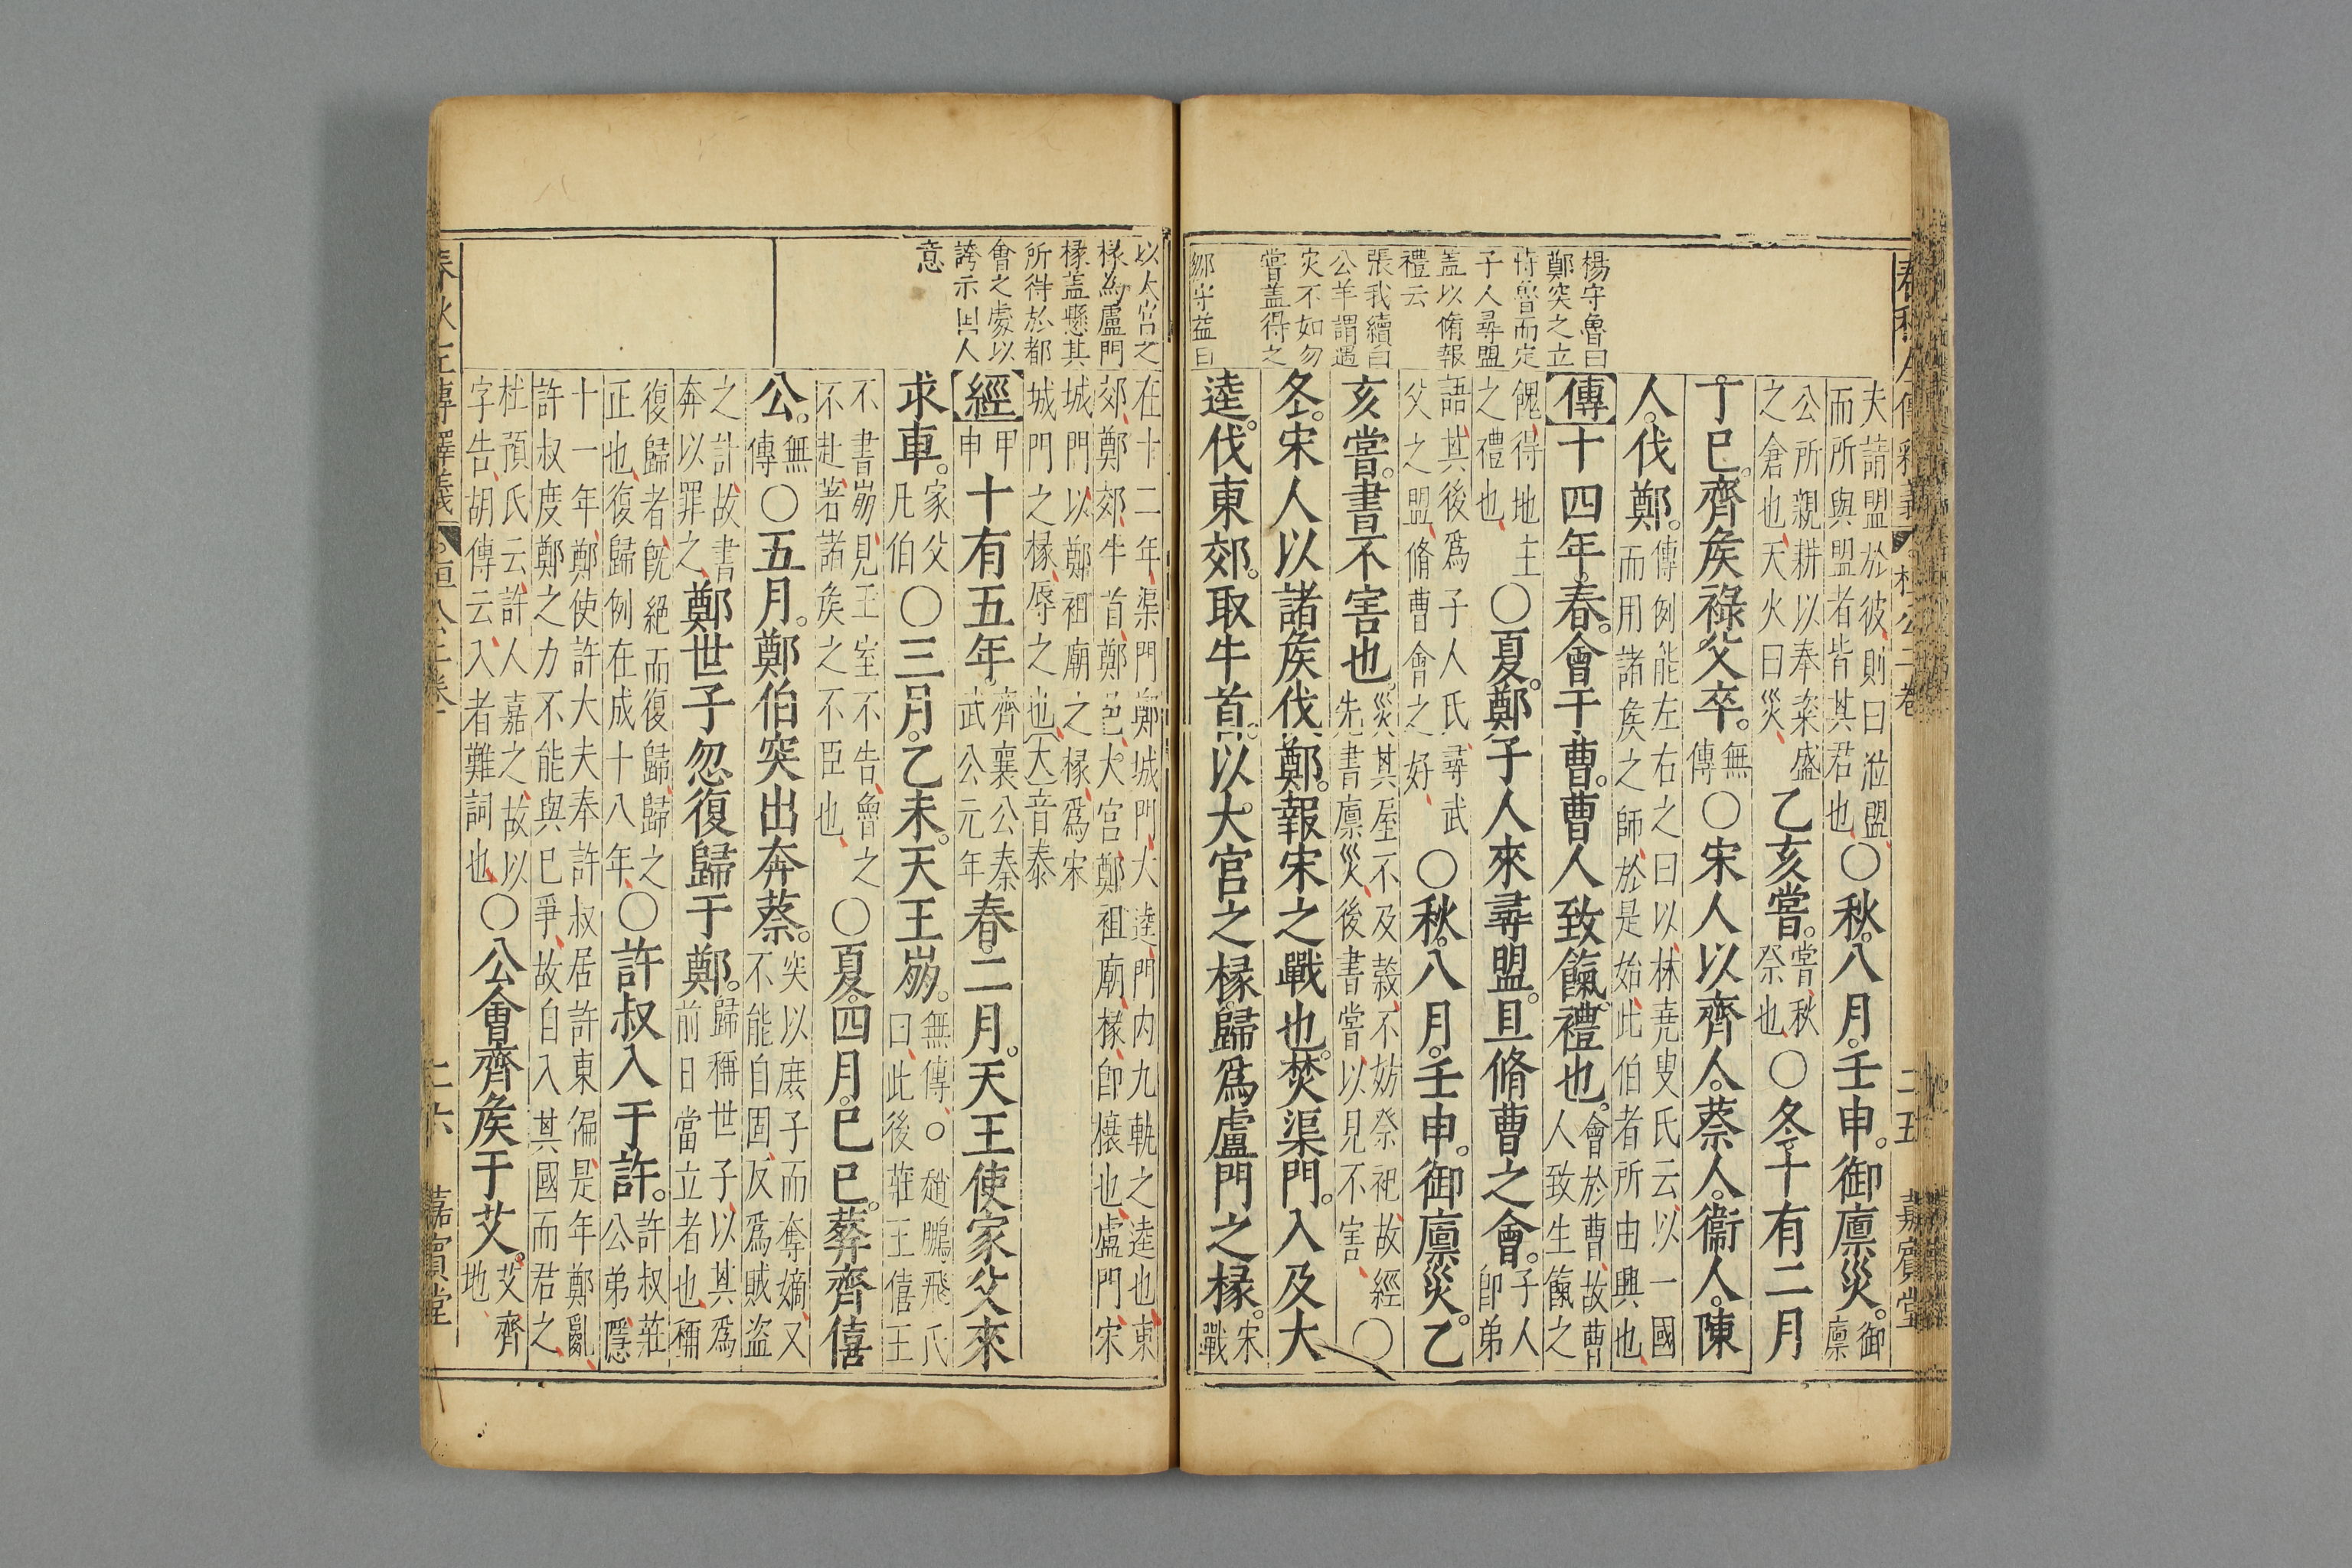 春秋左傳釋義 桓公二卷 二五 嘉賓堂
楊守魯曰
鄭突之立
恃魯而定
子人尋盟
盖以脩報
禮云
張我續曰
公羊謂遇
灾不如勿
嘗盖得之
鄒守益曰
夫請盟於彼則曰涖盟
而所與盟者皆其君也
○秋。八月。壬申。御廪災。
御
廪
公所親耕以奉粢盛
之倉也天火曰災
乙亥嘗。
嘗秋
祭也
○冬十有二月
丁巳。齊矦祿父卒。
無
傳
○宋人以齊人。蔡人。衞人。陳
人。伐鄭。
傳例能左右之曰以林堯叟氏云以一國
而用諸矦之師於是始此伯者所由興也
【傳】十四年。春。會于曹。曹人致餼。禮也。
會於曹故曹
人致生餼之
餽得地主
之禮也
○夏。鄭子人來尋盟。且脩曹之會。
子人
卽弟
語其後爲子人氏尋武
父之盟脩曹會之好
○秋。八月。壬申。御廪災。乙
亥嘗。書不害也。
災其屋不及榖不妨祭祀故經
先書廪災後書嘗以見不害
○
冬。宋人以諸矦伐鄭。報宋之戰也。焚渠門。入及大
逵。伐東郊。取牛首。以大宮之椽。歸爲盧門之椽。
宋
戰
以太宮之
椽爲盧門
椽盖懸其
所得於都
會之處以
誇示國人
意
在十二年渠門鄭城門大逵門内九軌之逵也東
郊鄭郊牛首鄭邑大宮鄭祖廟椽卽榱也盧門宋
城門以鄭祖廟之椽爲宋
城門之椽辱之也大音泰
【經】
甲
申
十有五年。
齊襄公秦
武公元年
春。二月。天王使家父來
求車。
家父
凡伯
○三月。乙未。天王崩。
無傳○趙鵬飛氏
曰此後莊王僖王
不書崩見王室不告魯之
不赴若諸矦之不臣也
○夏。四月。巳巳。葬齊僖
公。
無
傳
○五月。鄭伯突出奔蔡。
突以庶子而奪嫡又
不能自固反爲賊盗
之計故書
奔以罪之
鄭世子忽復歸于鄭。
歸稱世子以其爲
前日當立者也稱
復歸者旣絕而復歸歸之
正也復歸例在成十八年
○許叔入于許。
許叔莊
公弟隱
十一年鄭使許大夫奉許叔居許東偏是年鄭亂
許叔度鄭之力不能與已爭故自入其國而君之
杜預氏云許人嘉之故以
字告胡傳云入者難詞也
○公會齊矦于艾。
艾齊
地
春秋左傳釋義 桓公二卷 二六 嘉賓堂